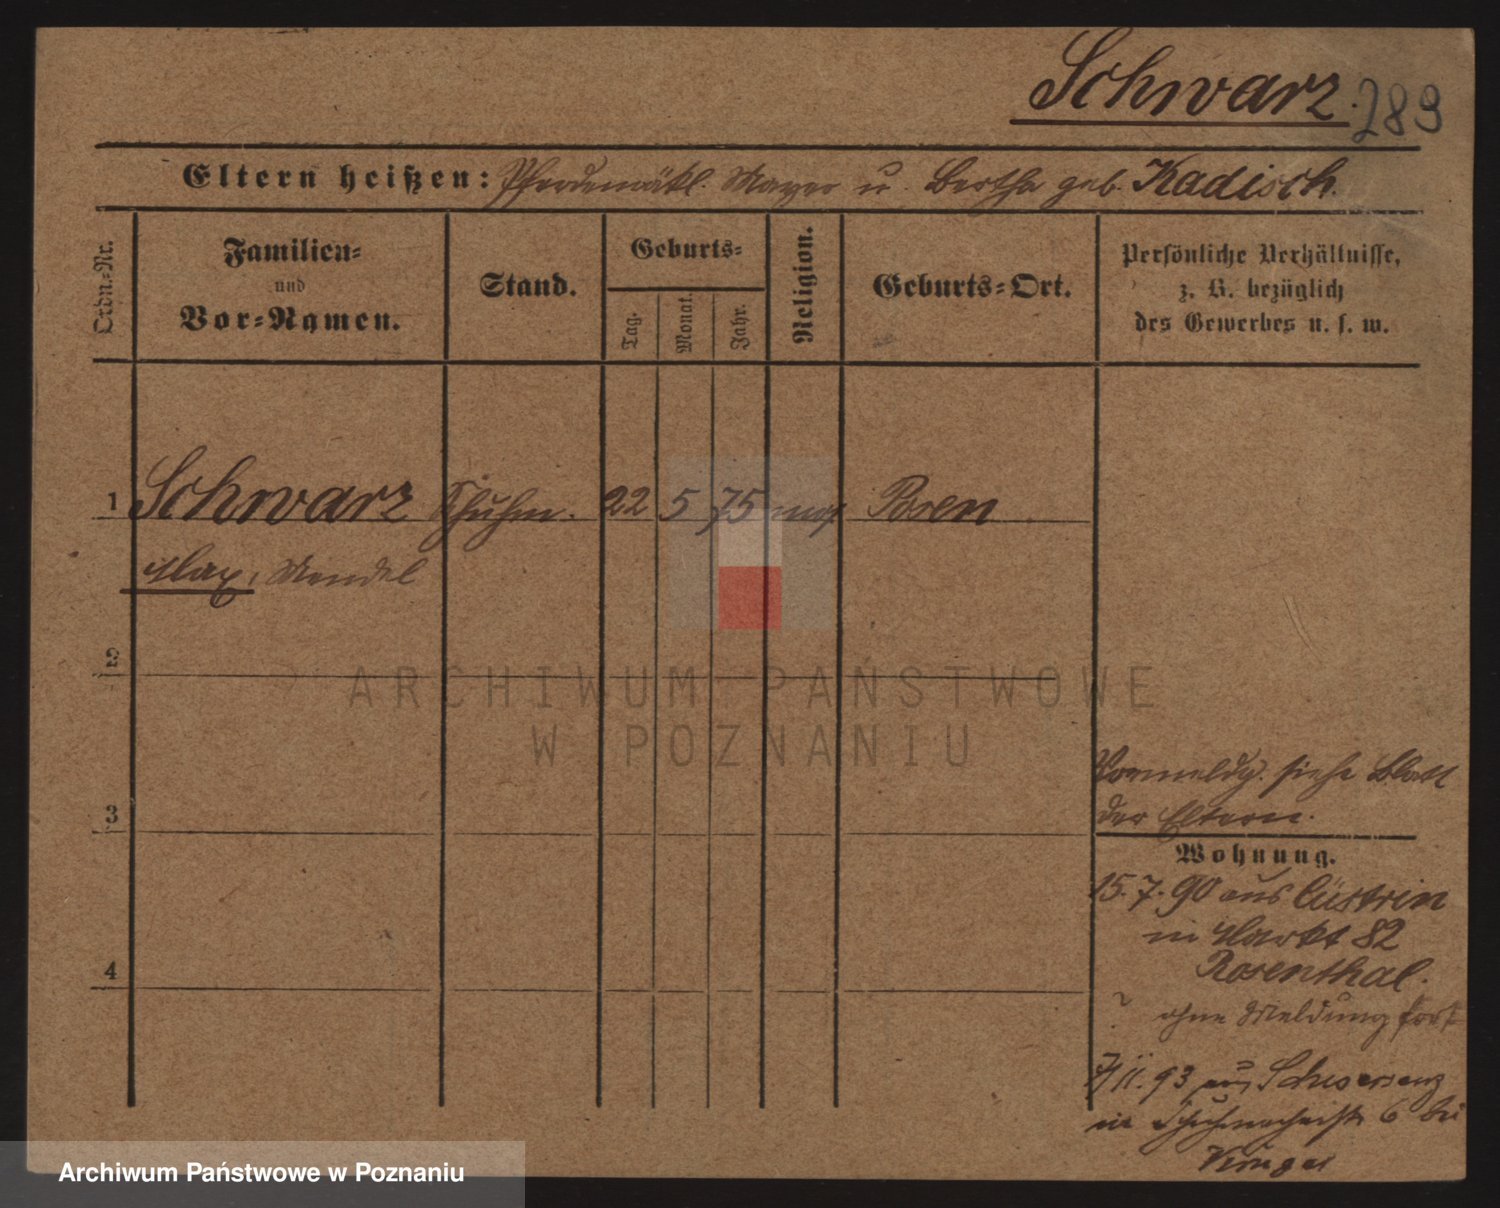 Schwarz. 289
Eltern heißen: Pferdemäkl. Mayer u. Bertha geb. Kadisch.
Ordn.-Nr.
Familien-
und
Vor-Namen.
Stand.
Geburts-
Tag.
Monat.
Jahr.
Religion.
Geburts-Ort.
Persönliche Verhältnisse,
z. B. bezüglich
des Gewerbes u. s. w.
1 Schwarz Schuhm. 22 5 75 mos. Posen
Max, Mendel
2
3
4
Vormeldg. siehe Blatt
der Eltern.
Wohnung.
15.7.90 aus Cüstrin
in Markt 82
Rosenthal.
? ohne Meldung fort
7/11.93 aus Schwersenz
in Schuhmacherstr 6 bei
Krüger
ARCHIWUM PAŃSTWOWE
W POZNANIU
Archiwum Państwowe w Poznaniu